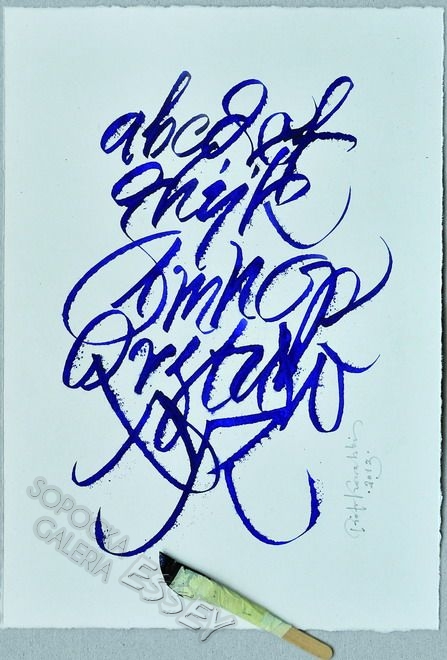 abcdef
ghijk
lmnop
Qrstuvw
xyz
2013.
SOPOCKA
GALERIA ESSEY